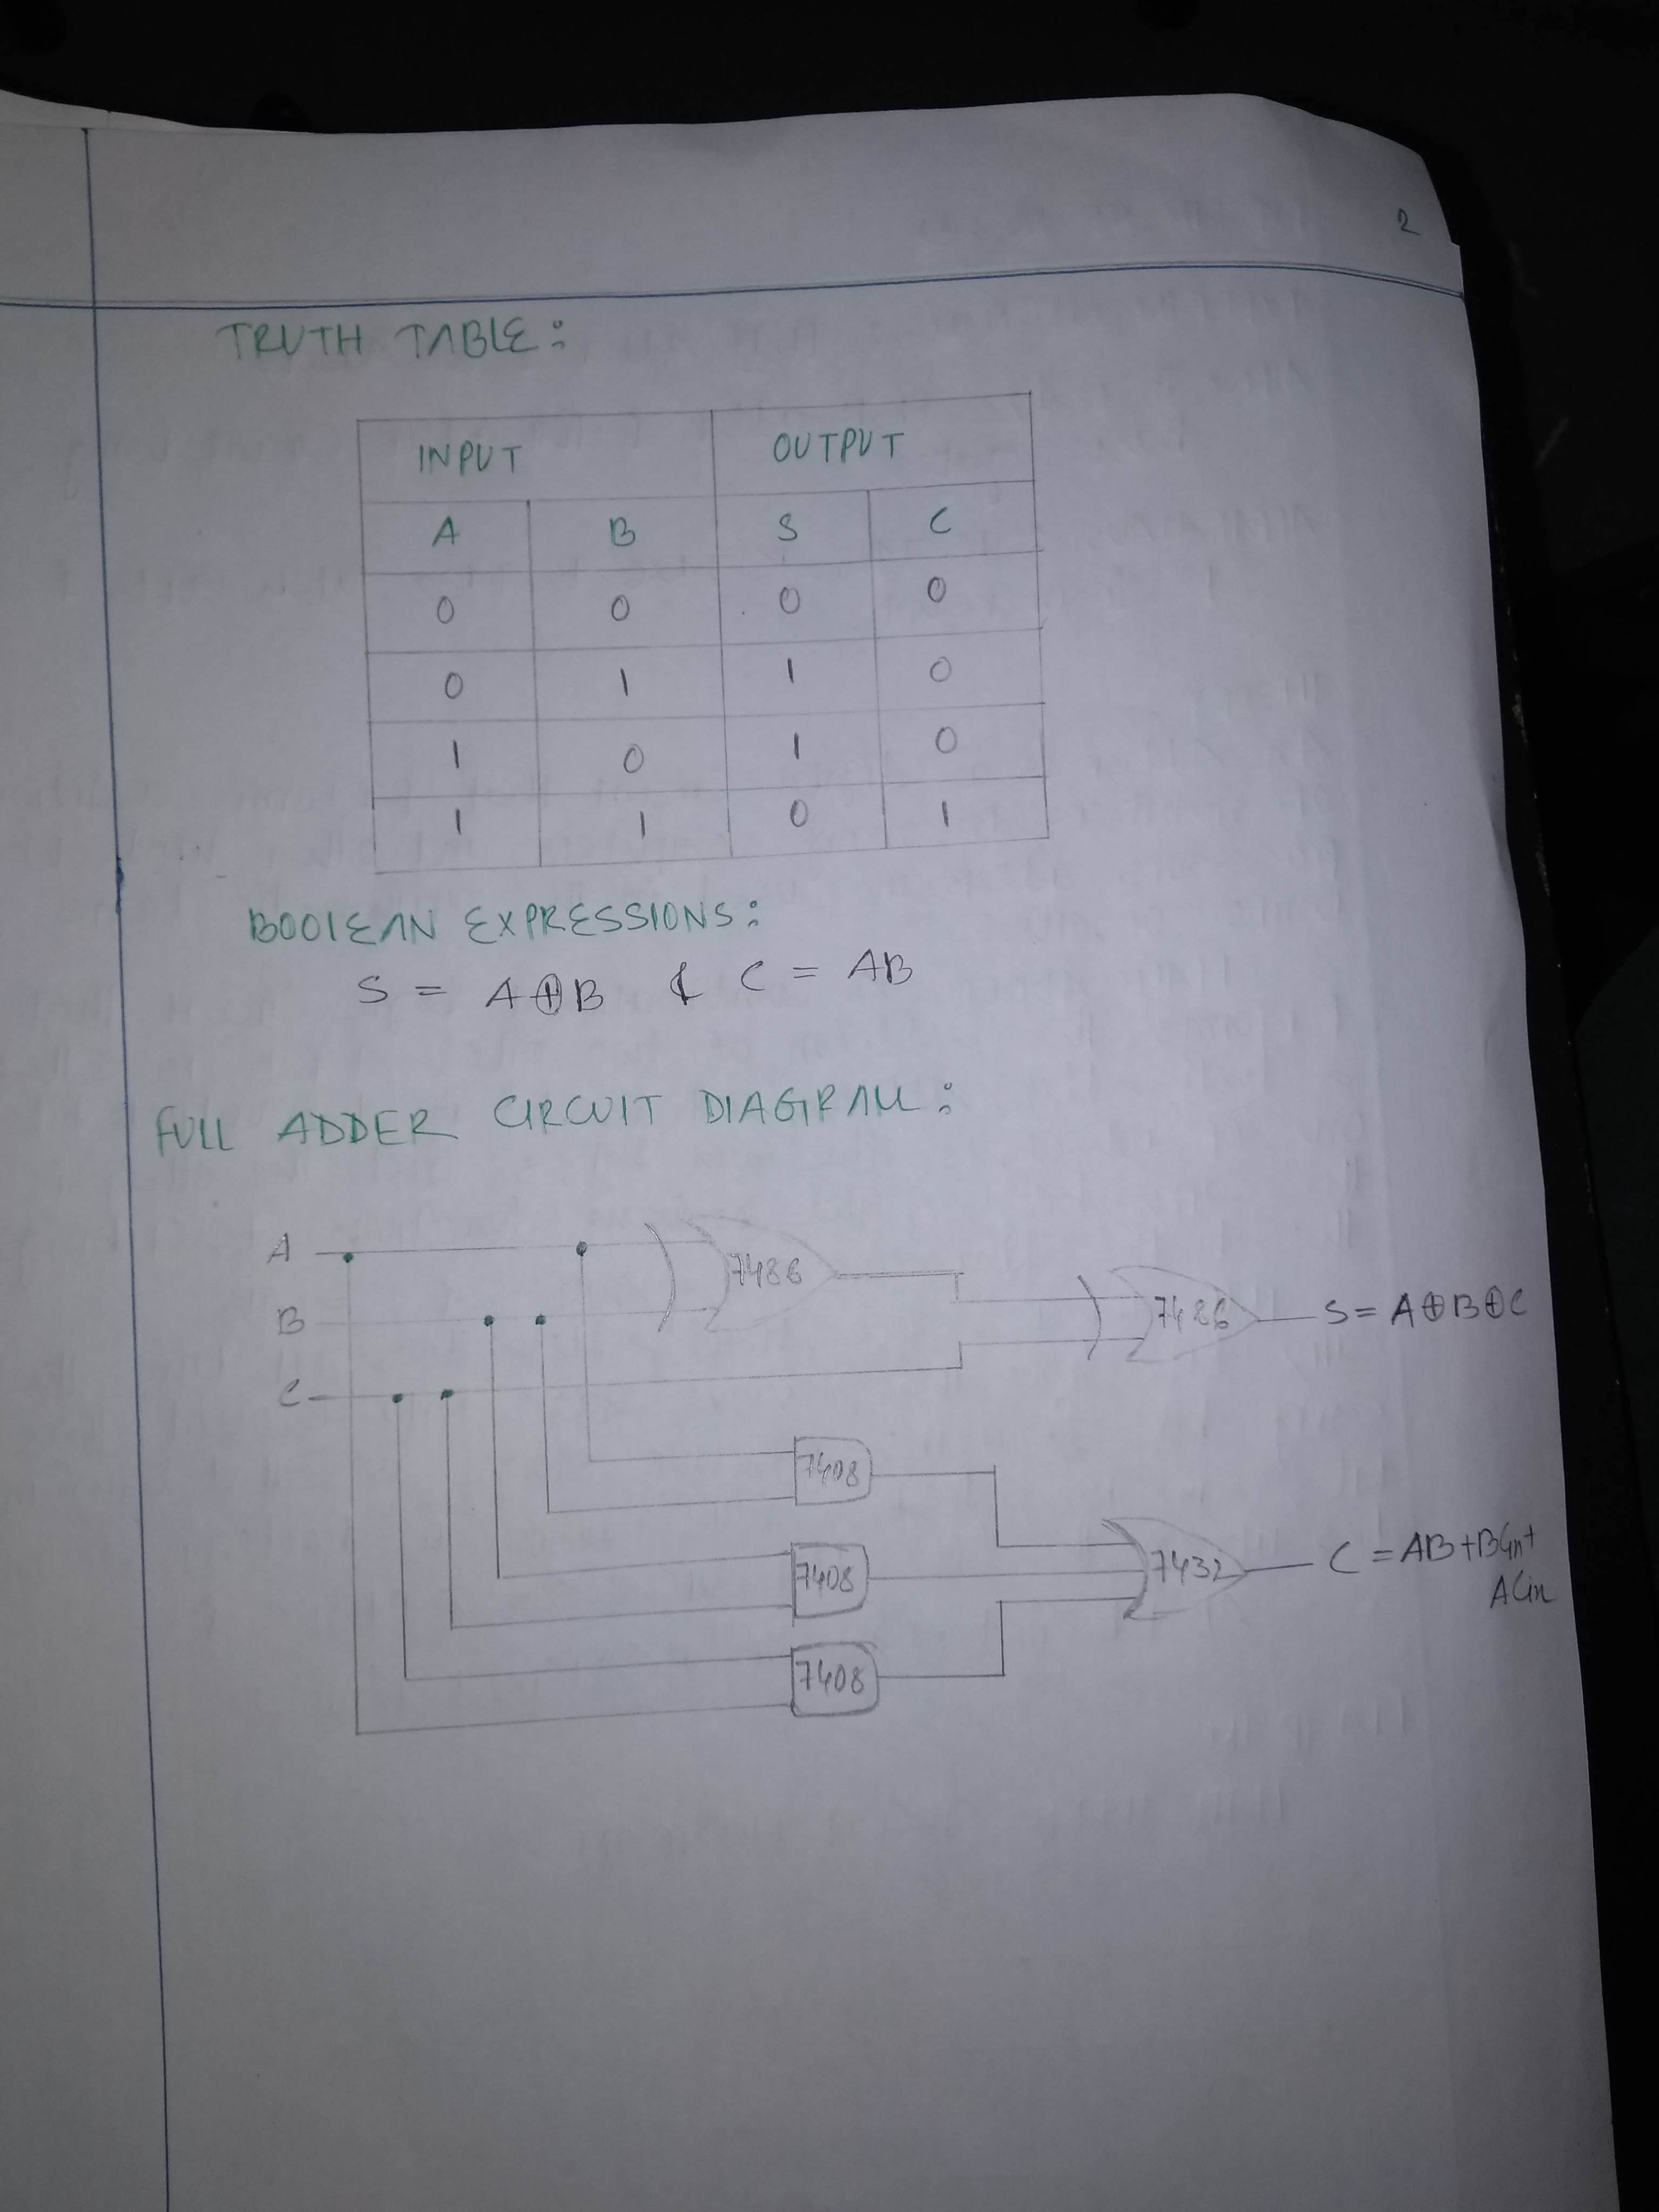 2
TRUTH TABLE:
INPUT OUTPUT
A B S C
0 0 0 0
0 1 1 0
1 0 1 0
1 1 0 1
BOOLEAN EXPRESSIONS:
S = A⊕B & C = AB
FULL ADDER CIRCUIT DIAGRAM:
A
7486
B
7486
S = A⊕B⊕C
C
7408
7408
7432
C = AB+BCin+
ACin
7408